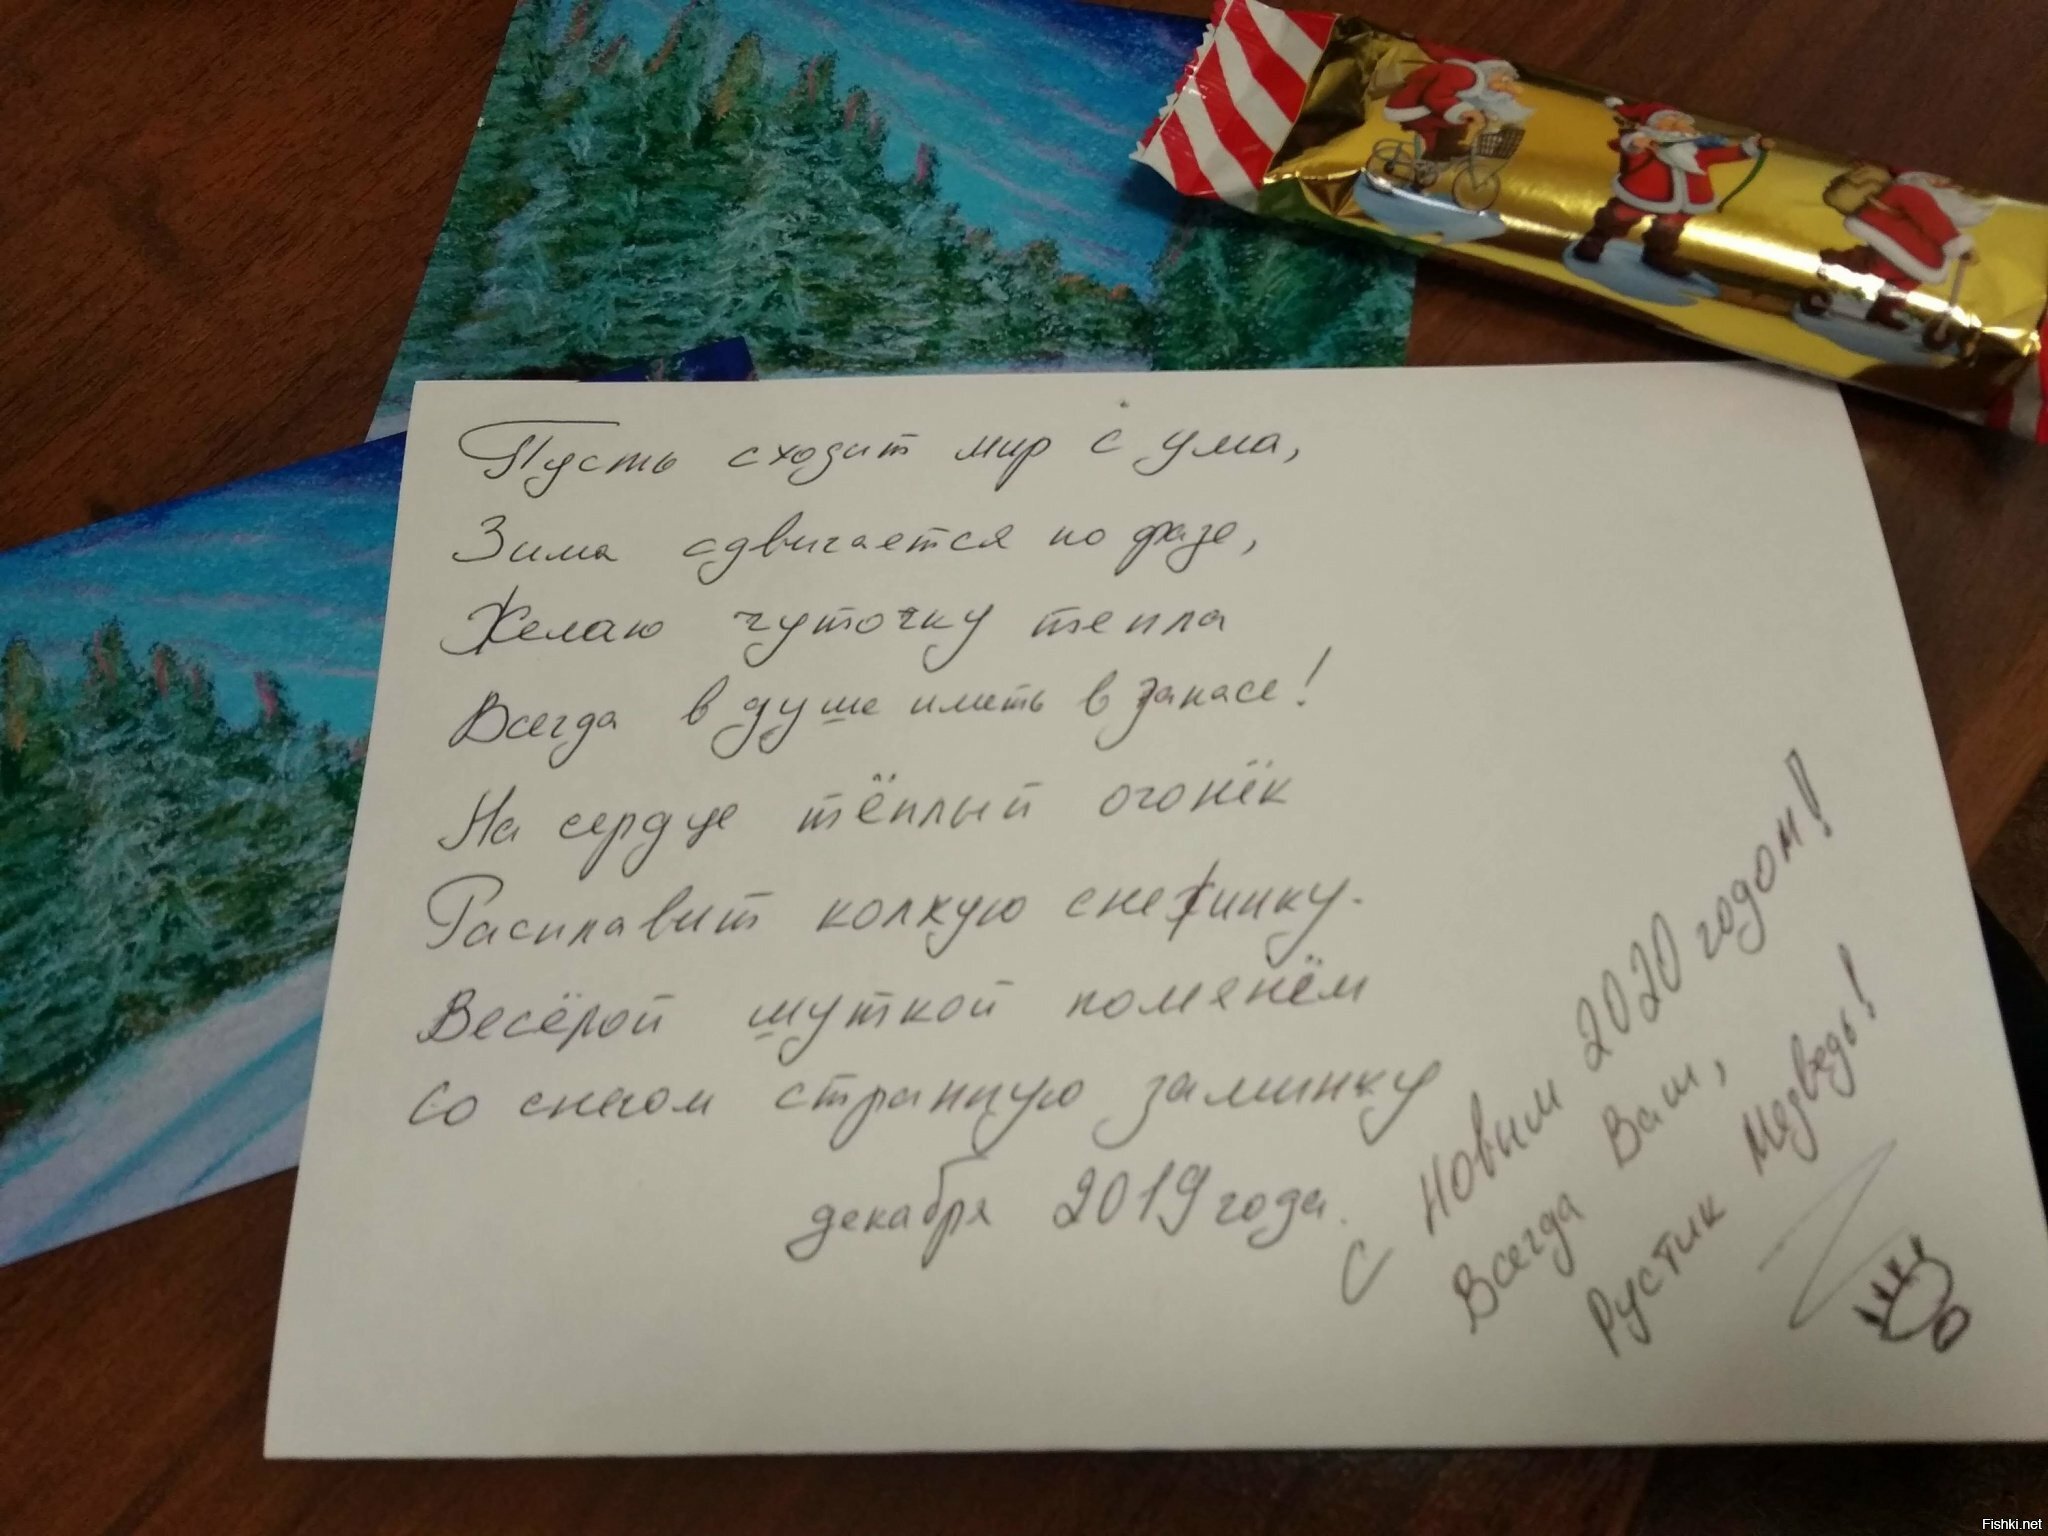 Пусть сходит мир с ума,
Зима сдвигается по фазе,
Желаю чуточку тепла
Всегда в душе иметь в запасе!
На сердце тёплый огонёк
Расплавит колкую снежинку.
Весёлой шуткой помянём
Со снегом странную заминку
декабря 2019 года.
С Новым 2020 годом!
Всегда Ваш,
Рустик Медведь!
Fishki.net